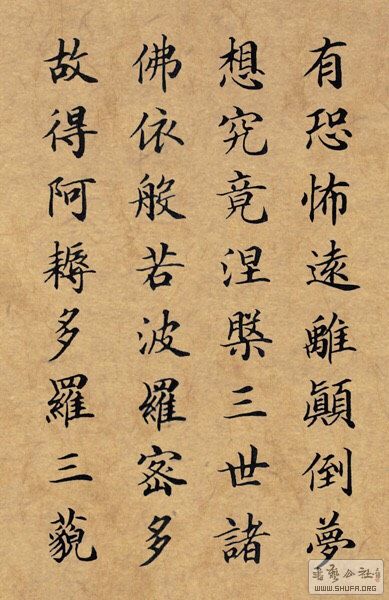 有恐怖遠離顛倒夢
想究竟涅槃三世諸
佛依般若波羅蜜多
故得阿耨多羅三藐
WWW.SHUFA.ORG